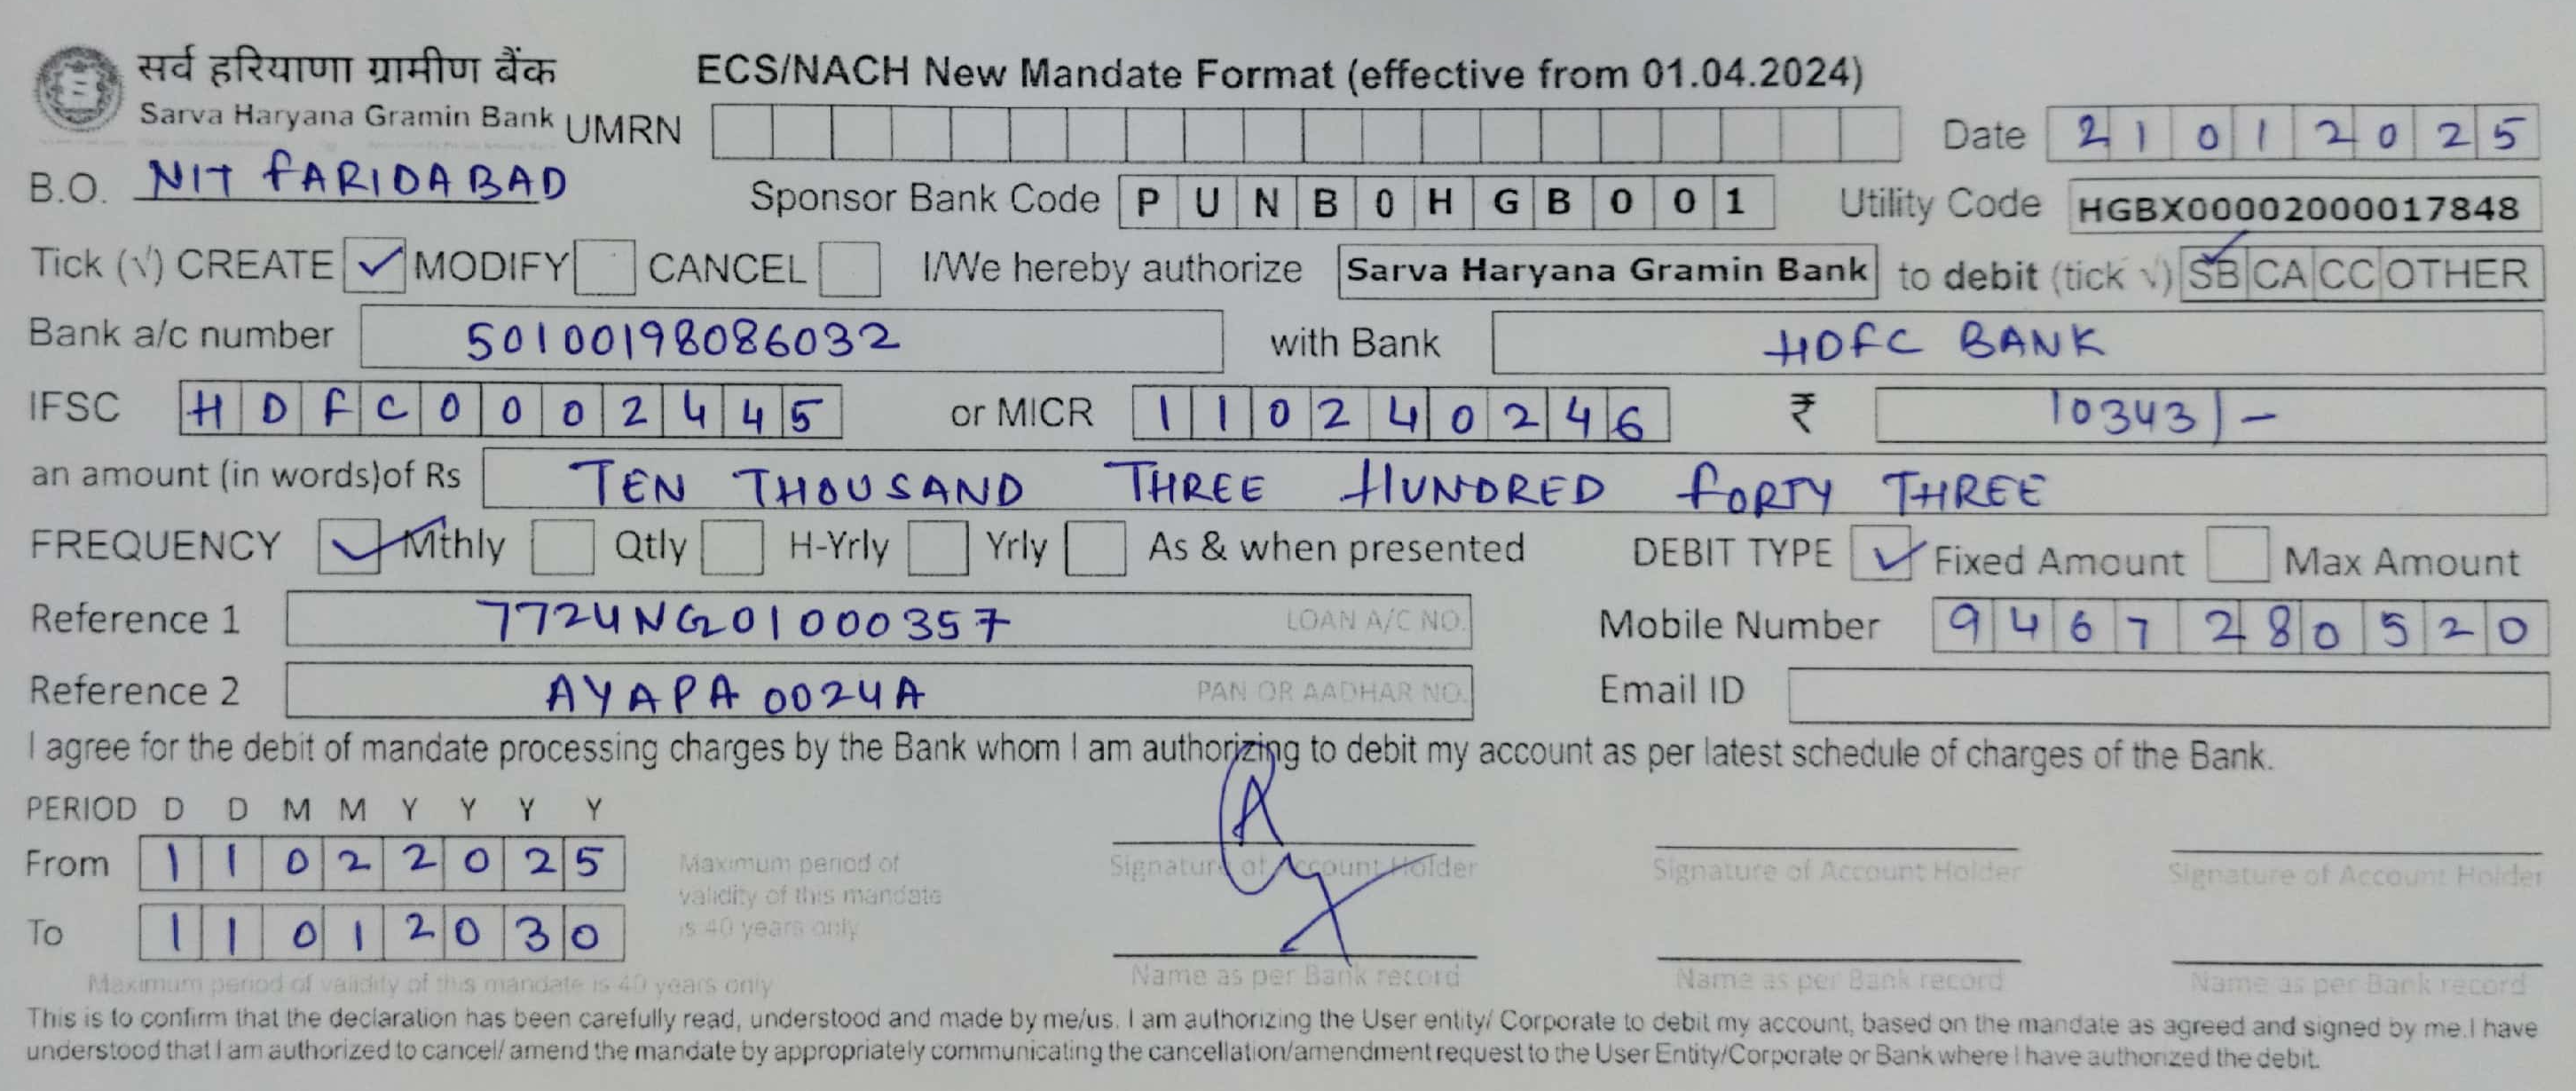 सर्व हरियाणा ग्रामीण बैंक ECS/NACH New Mandate Format (effective from 01.04.2024)
Sarva Haryana Gramin Bank UMRN Date 21012025
B.O. NIT FARIDABAD Sponsor Bank Code PUNB0HGB001 Utility Code HGBX00002000017848
Tick (√) CREATE ✓ MODIFY CANCEL I/We hereby authorize Sarva Haryana Gramin Bank to debit (tick √) SB ✓ CA CC OTHER
Bank a/c number 50100198086032 with Bank HDFC BANK
IFSC HDFC0002445 or MICR 110240246 ₹ 10343/-
an amount (in words)of Rs TEN THOUSAND THREE HUNDRED FORTY THREE
FREQUENCY ✓ Mthly Qtly H-Yrly Yrly As & when presented DEBIT TYPE ✓ Fixed Amount Max Amount
Reference 1 7724NG01000357 LOAN A/C NO. Mobile Number 9467280520
Reference 2 AYAPA0024A PAN OR AADHAR NO. Email ID
I agree for the debit of mandate processing charges by the Bank whom I am authorizing to debit my account as per latest schedule of charges of the Bank.
PERIOD D D M M Y Y Y Y
From 11022025 Maximum period of validity of this mandate is 40 years only
Signature of Account Holder Signature of Account Holder Signature of Account Holder
To 11012030
Name as per Bank record Name as per Bank record Name as per Bank record
Maximum period of validity of this mandate is 40 years only
This is to confirm that the declaration has been carefully read, understood and made by me/us. I am authorizing the User entity/ Corporate to debit my account, based on the mandate as agreed and signed by me.I have
understood that I am authorized to cancel/ amend the mandate by appropriately communicating the cancellation/amendment request to the User Entity/Corporate or Bank where I have authorized the debit.